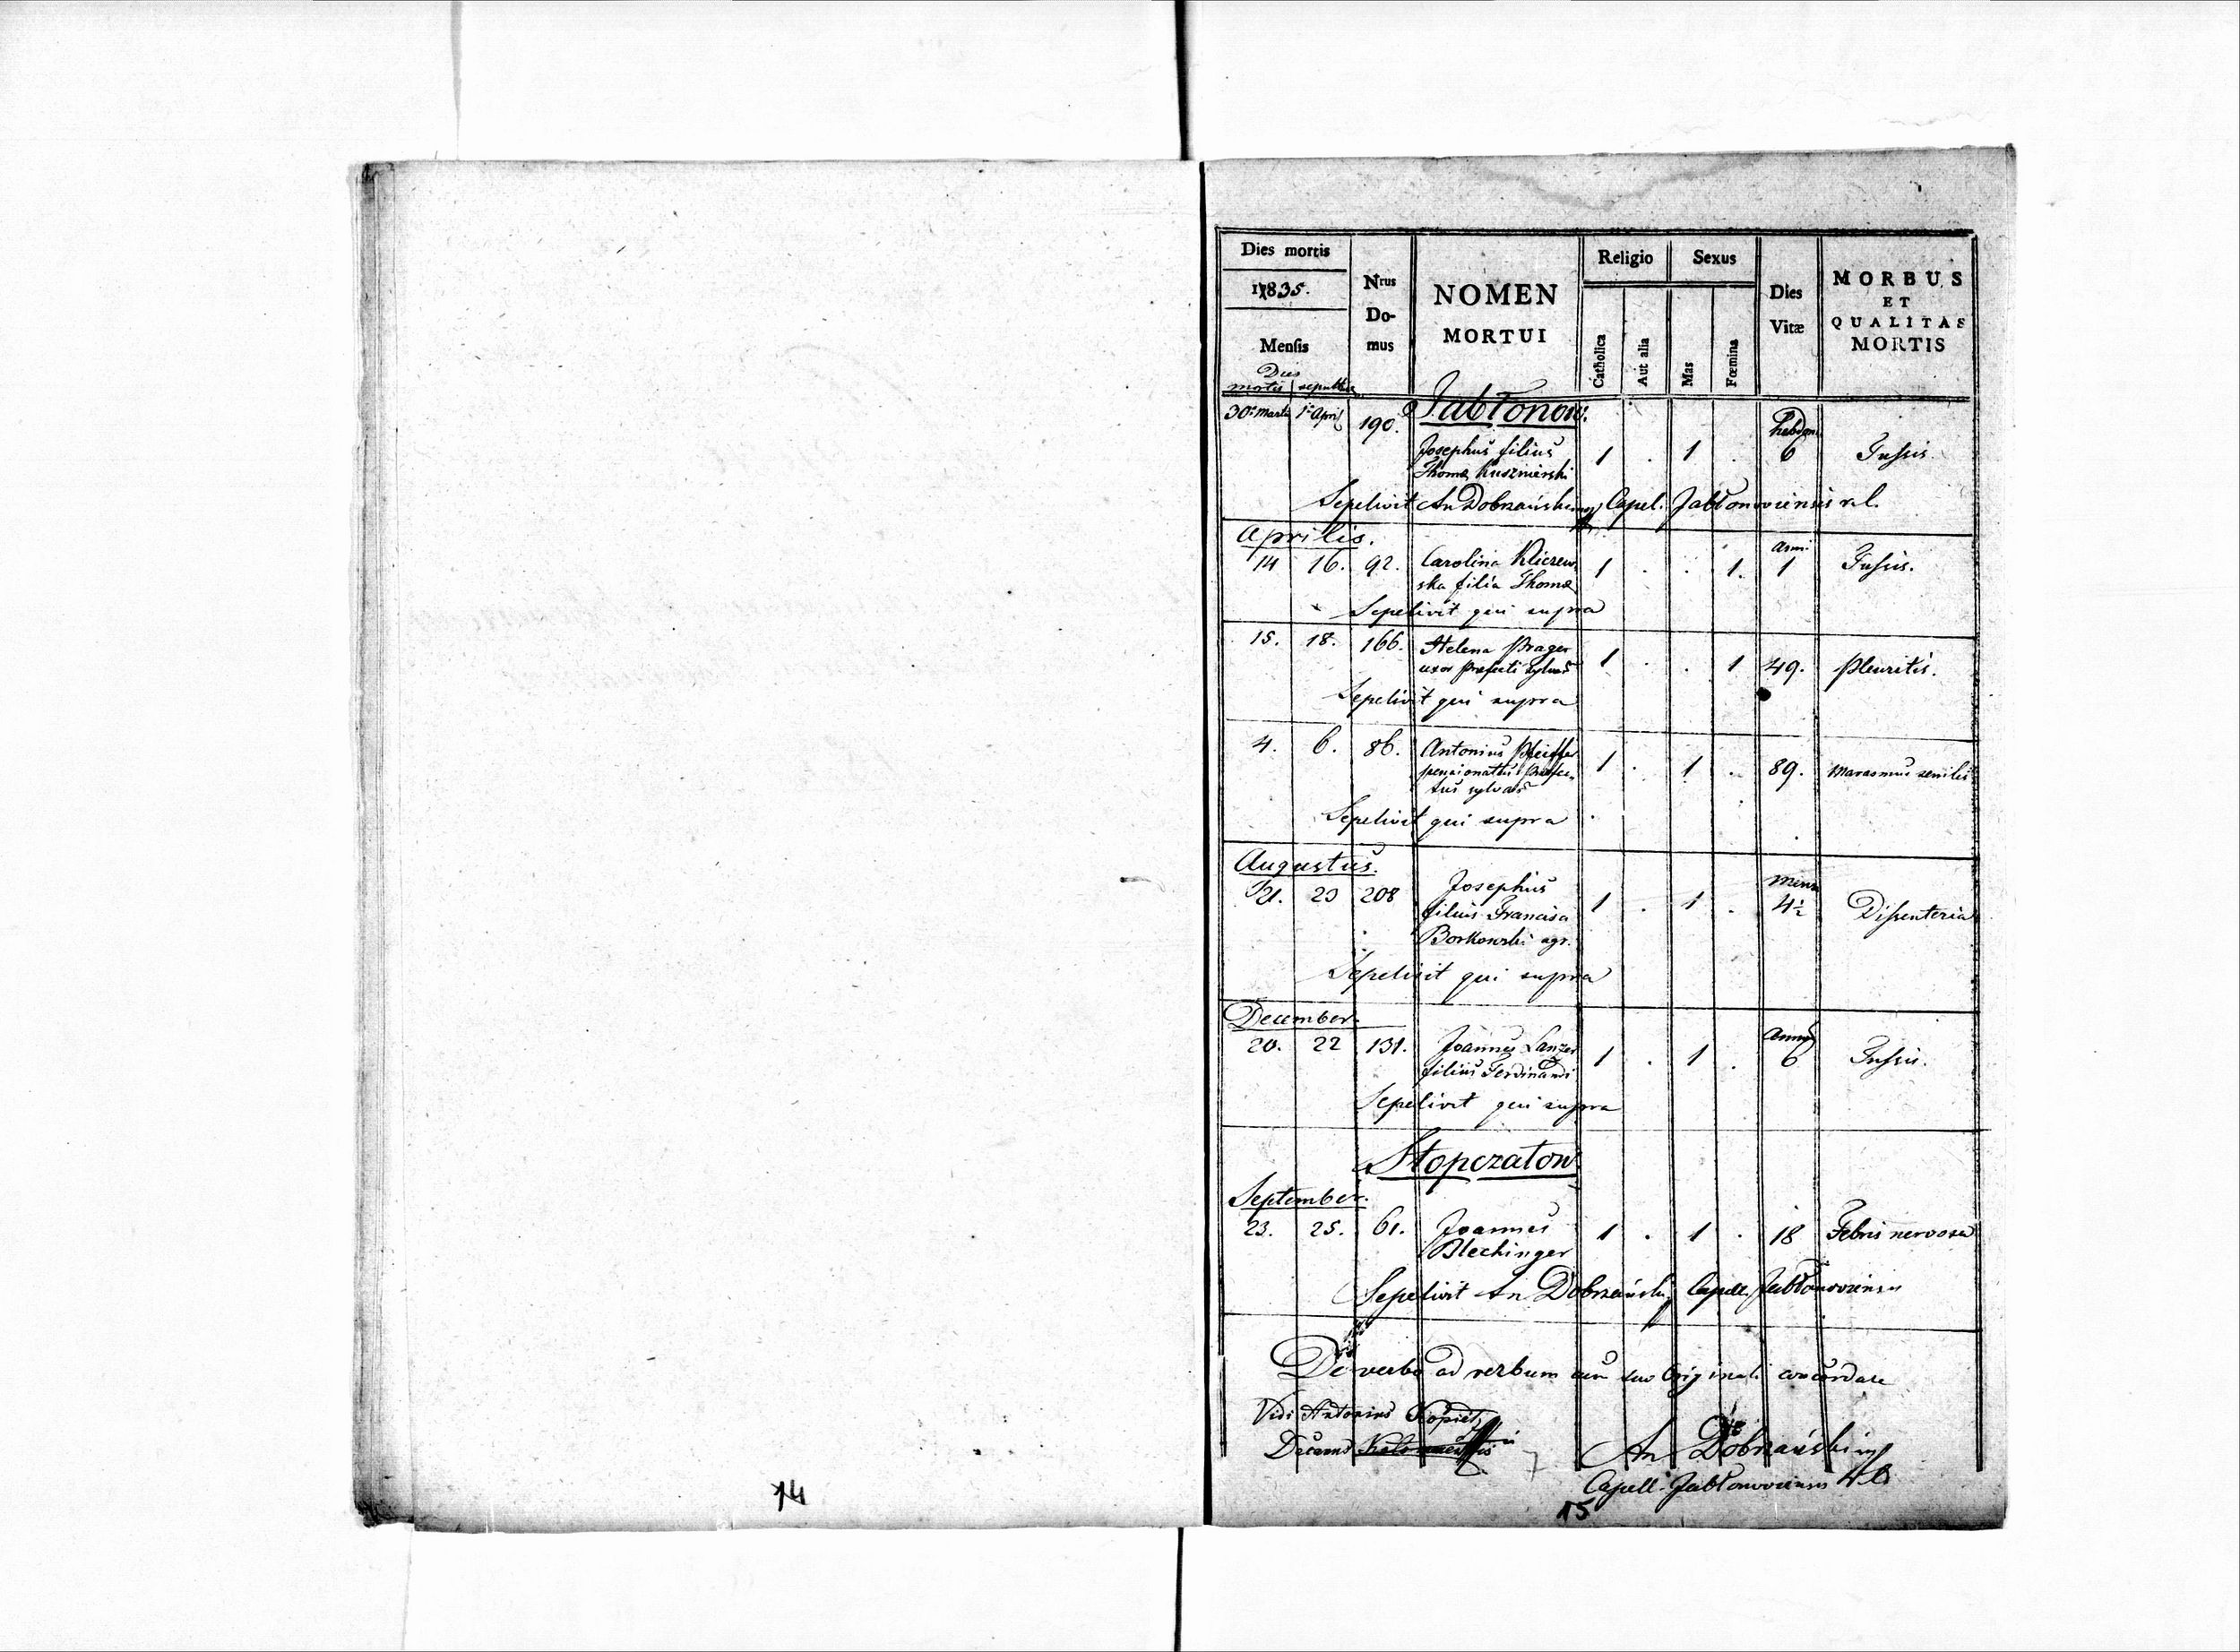 Dies mortis
1835.
Mensis
Dies
mortis sepultura
Nrus
Do-
mus
NOMEN
MORTUI
Religio
Catholica
Aut alia
Sexus
Mas
Fœmina
Dies
Vitæ
MORBUS
ET
QUALITAS
MORTIS
Jabłonow.
30a Martii 1a April 190. Josephus filius 1 . 1 . hebdom 6 Tussis.
Thomæ Kuszmierski
Sepelivit An Dobrzański mp Capel. Jabłonoviensis r.l.
Aprilis.
14 16. 92. Carolina Kliczew 1 . . 1. Anni 1 Tussis.
ska filia Thomæ
Sepelivit qui supra
15. 18. 166. Helena Prager 1 . . 1 49. Pleuritis.
uxor Præfecti sylvar
Sepelivit qui supra
4. 6. 86. Antonius Pfeiffer 1 . 1 . 89. Marasmus senilis
pensionatus Præfec-
tus sylvar
Sepelivit qui supra
Augustus.
21. 23 208 Josephus 1 . 1 . Mens 4½ Dissenteria
filius Francisci
Borkowski agr.
Sepelivit qui supra
December.
20. 22 131. Joannes Lanzer 1 . 1 . Annor 6 Tussis.
filius Ferdinandi
Sepelivit qui supra
Stopczatow
September.
23. 25. 61. Joannes 1 . 1 . 18 Febris nervosa
Blechinger
Sepelivit An Dobrzański Capell. Jabłonoviensis
De verbo ad verbum cum suo Originali concordare
Vidi Antonius Kopiet
Decanus
An Dobrzański mp
Capell. Jabłonoviensis
14
15